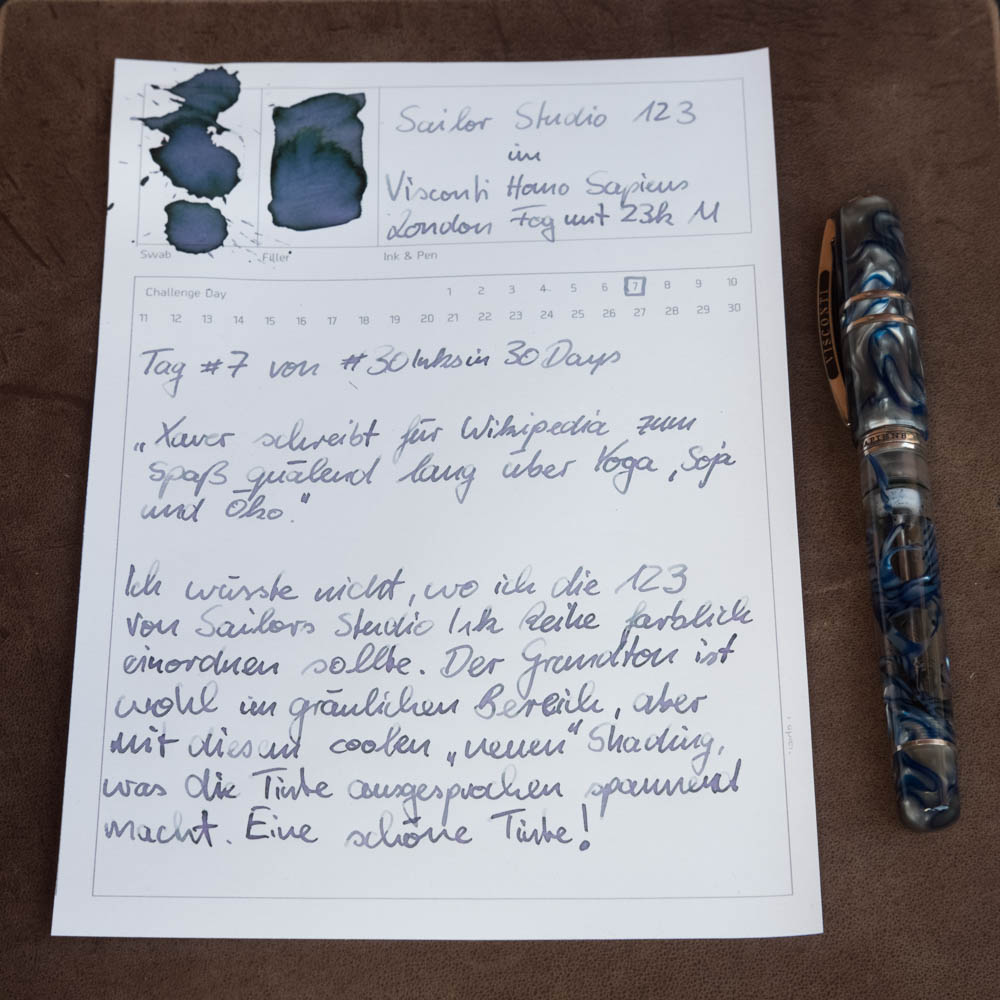 Sailor Studio 123
im
Visconti Homo Sapiens
London Fog mit 23k M
Swab
Filler
Ink & Pen
Challenge Day 1 2 3 4 5 6 7 8 9 10
11 12 13 14 15 16 17 18 19 20 21 22 23 24 25 26 27 28 29 30
Tag #7 von #30Inksin30Days
„Xaver schreibt für Wikipedia zum
Spaß quälend lang über Yoga, Soja
und Öko."
Ich wüsste nicht, wo ich die 123
von Sailors Studio Ink Reihe farblich
einordnen sollte. Der Grundton ist
wohl im gräulichen Bereich, aber
mit diesem coolen „neuen" Shading,
was die Tinte ausgesprochen spannend
macht. Eine schöne Tinte!
VISCONTI